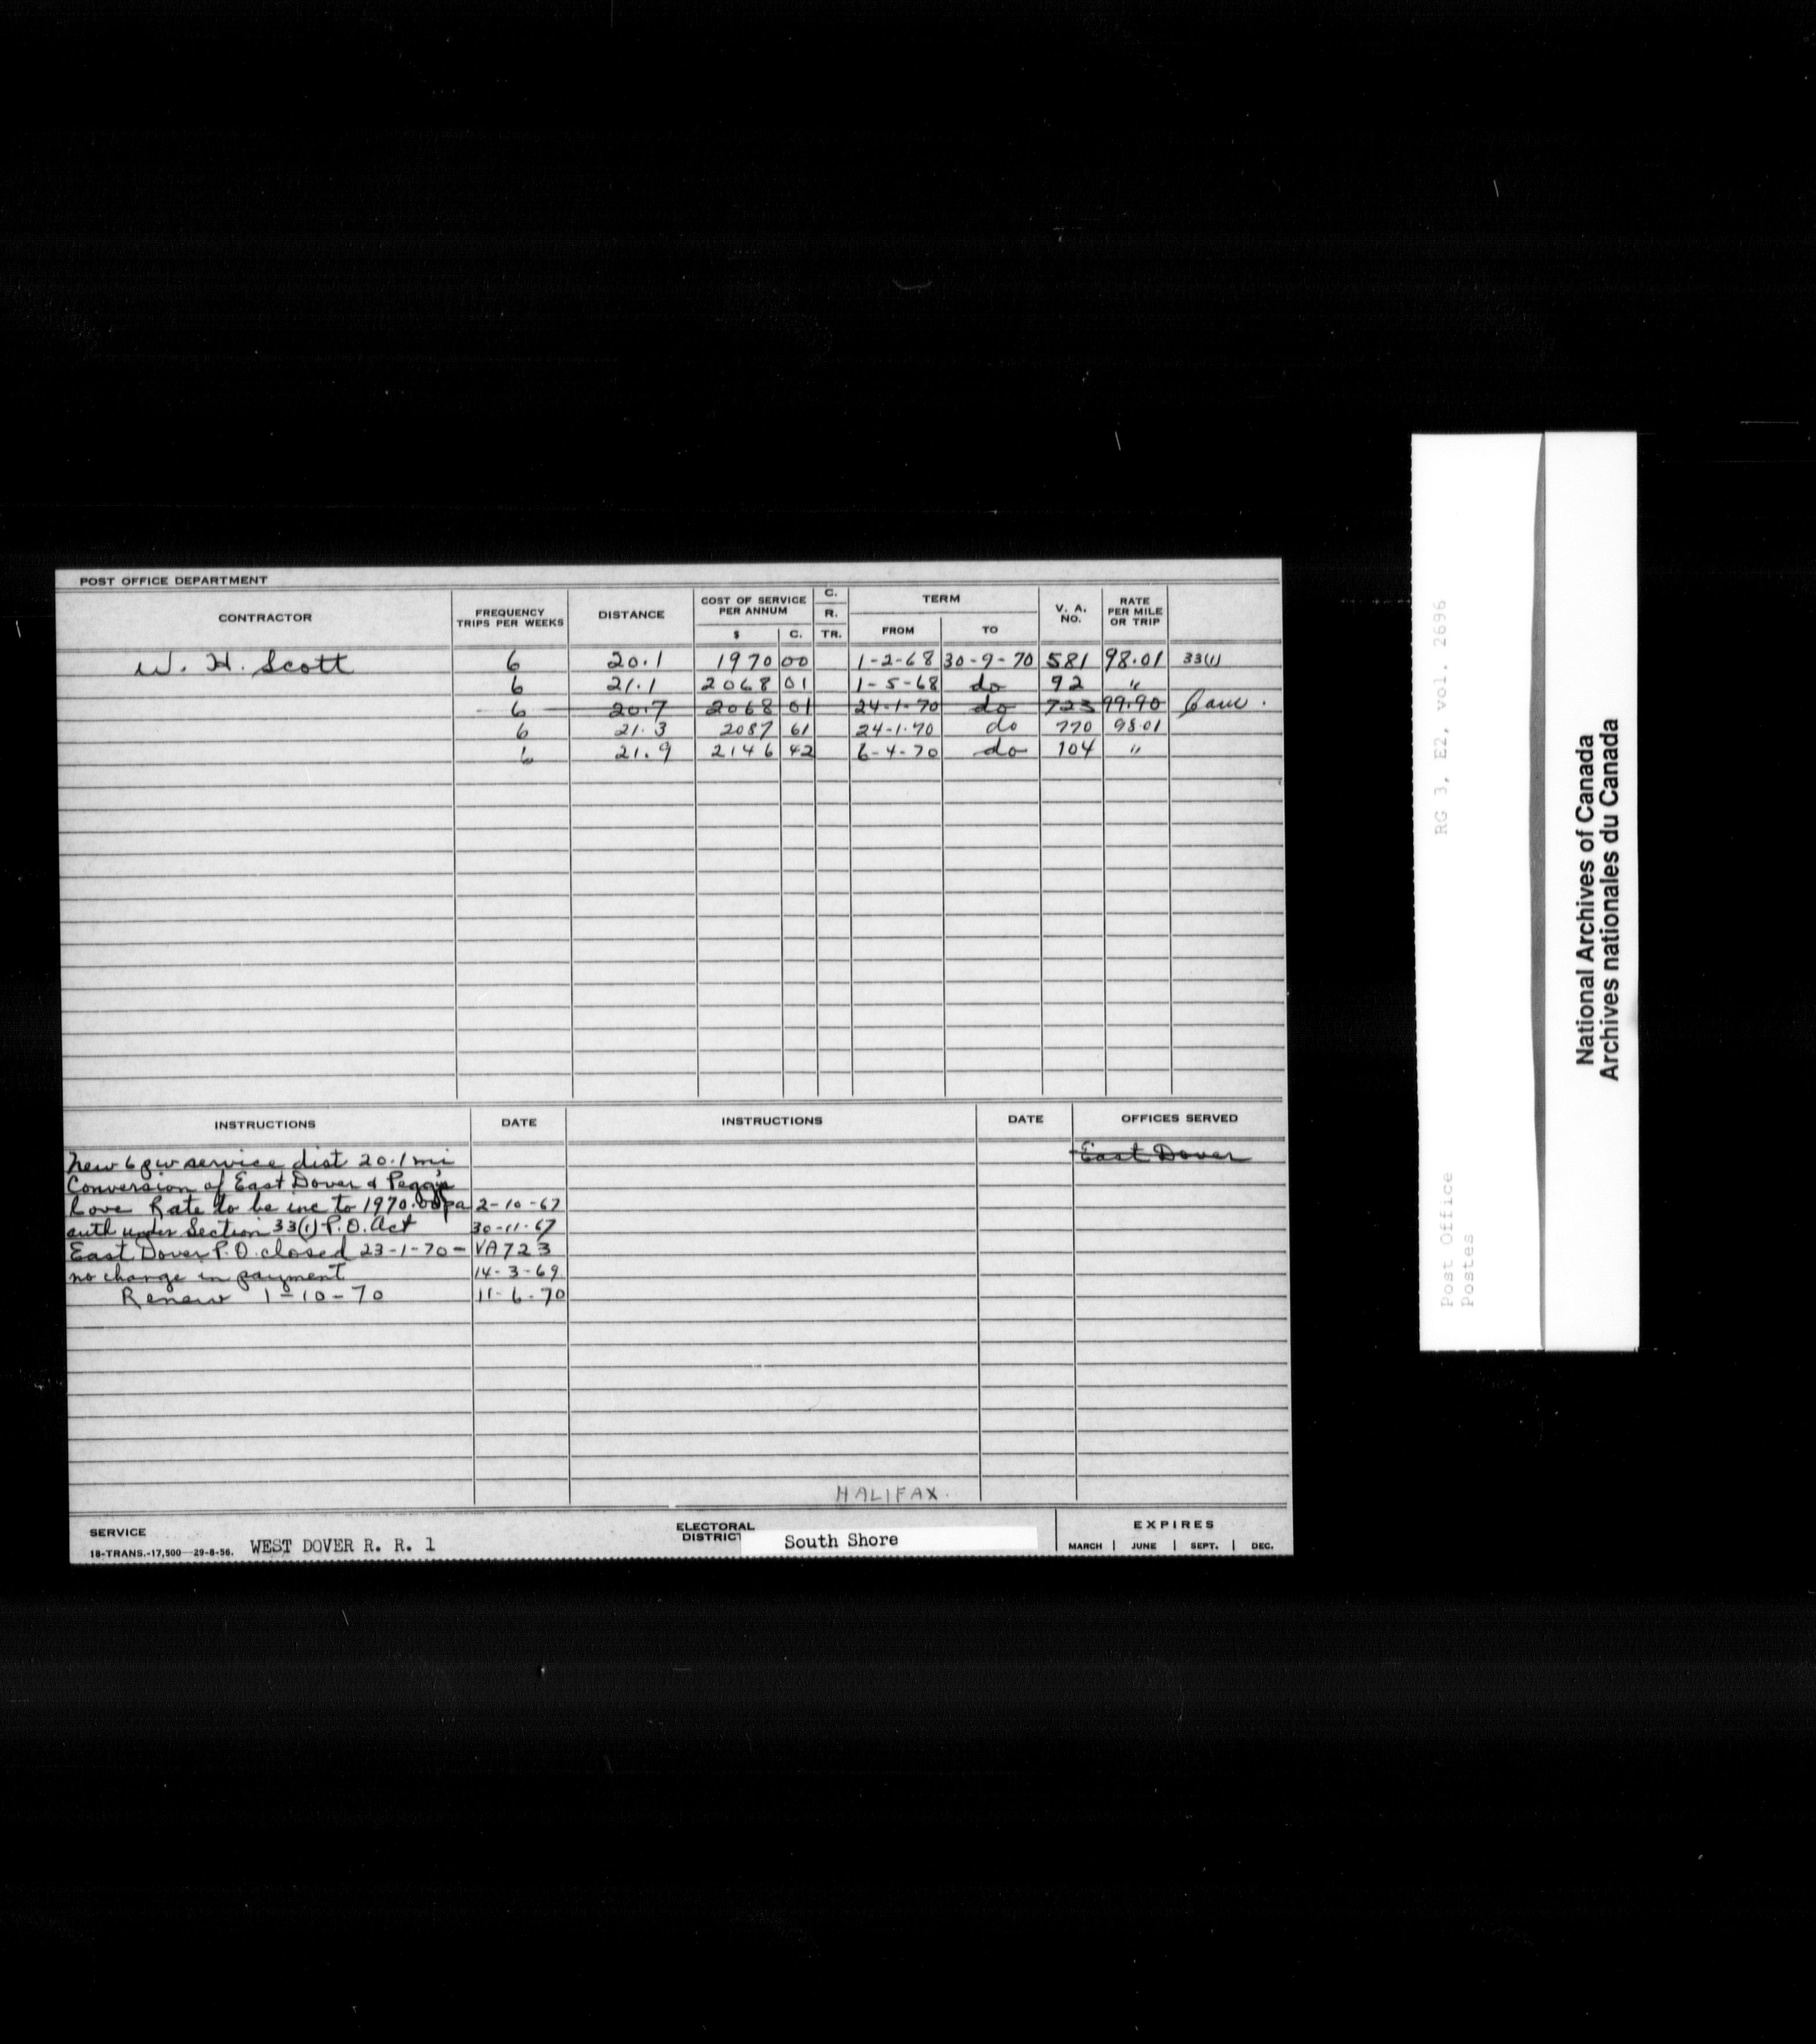 POST OFFICE DEPARTMENT
CONTRACTOR FREQUENCY TRIPS PER WEEKS DISTANCE COST OF SERVICE PER ANNUM $ C. C. R. TR. TERM FROM TO V. A. NO. RATE PER MILE OR TRIP
W. H. Scott 6 20.1 1970 00 1-2-68 30-9-70 581 98.01 33(1)
6 21.1 2068 01 1-5-68 do 92 "
6 20.7 2068 01 24-1-70 do 723 99.90 Canc.
6 21.3 2087 61 24-1-70 do 770 98.01
6 21.9 2146 42 6-4-70 do 104 "
INSTRUCTIONS DATE INSTRUCTIONS DATE OFFICES SERVED
New 6 pw service dist 20.1 mi East Dover
Conversion of East Dover & Peggy's
Cove Rate to be inc to 1970.00 pa 2-10-67
auth under Section 33(1) P.O. Act 30-11-67
East Dover P.O. closed 23-1-70 - VA 723
no change in payment 14-3-69
Renew 1-10-70 11-6-70
HALIFAX.
SERVICE WEST DOVER R. R. 1 ELECTORAL DISTRICT South Shore EXPIRES
18-TRANS.-17,500—29-8-56. MARCH | JUNE | SEPT. | DEC.
RG 3, E2, vol. 2696
Post Office
Postes
National Archives of Canada
Archives nationales du Canada